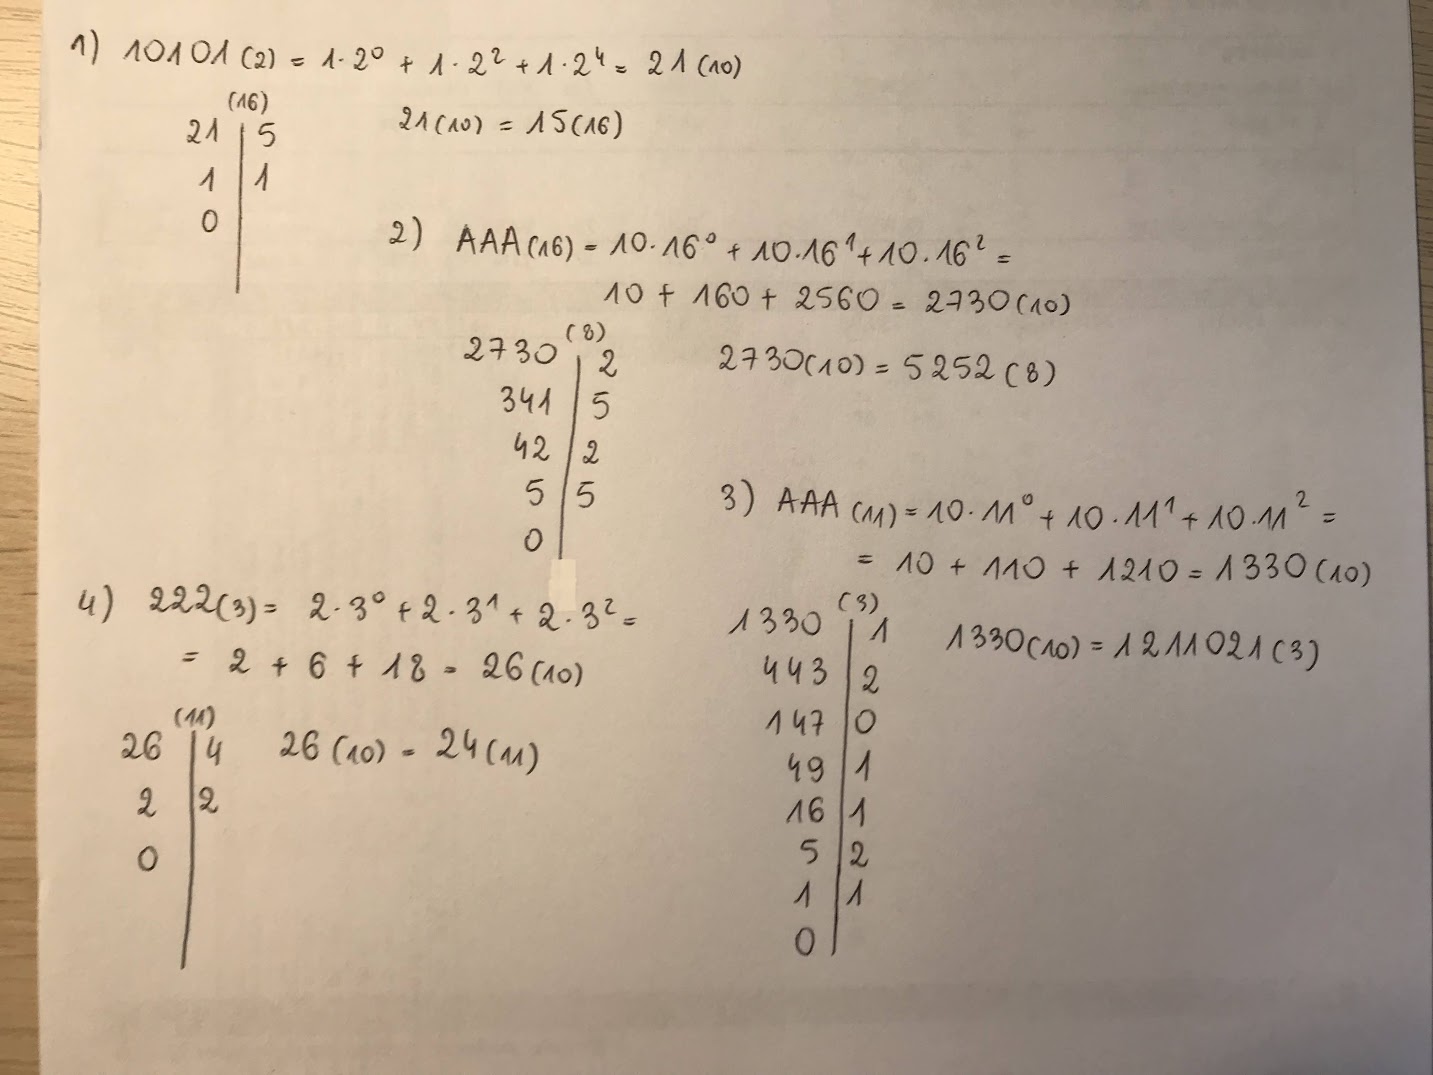 1) 10101 (2) = 1·2⁰ + 1·2² + 1·2⁴ = 21 (10)
(16)
21 | 5
1 | 1
0
21 (10) = 15 (16)
2) AAA (16) = 10·16⁰ + 10·16¹ + 10·16² =
10 + 160 + 2560 = 2730 (10)
(8)
2730 | 2
341 | 5
42 | 2
5 | 5
0
2730 (10) = 5252 (8)
3) AAA (11) = 10·11⁰ + 10·11¹ + 10·11² =
= 10 + 110 + 1210 = 1330 (10)
(3)
1330 | 1
443 | 2
147 | 0
49 | 1
16 | 1
5 | 2
1 | 1
0
1330 (10) = 1211021 (3)
4) 222 (3) = 2·3⁰ + 2·3¹ + 2·3² =
= 2 + 6 + 18 = 26 (10)
(11)
26 | 4
2 | 2
0
26 (10) = 24 (11)